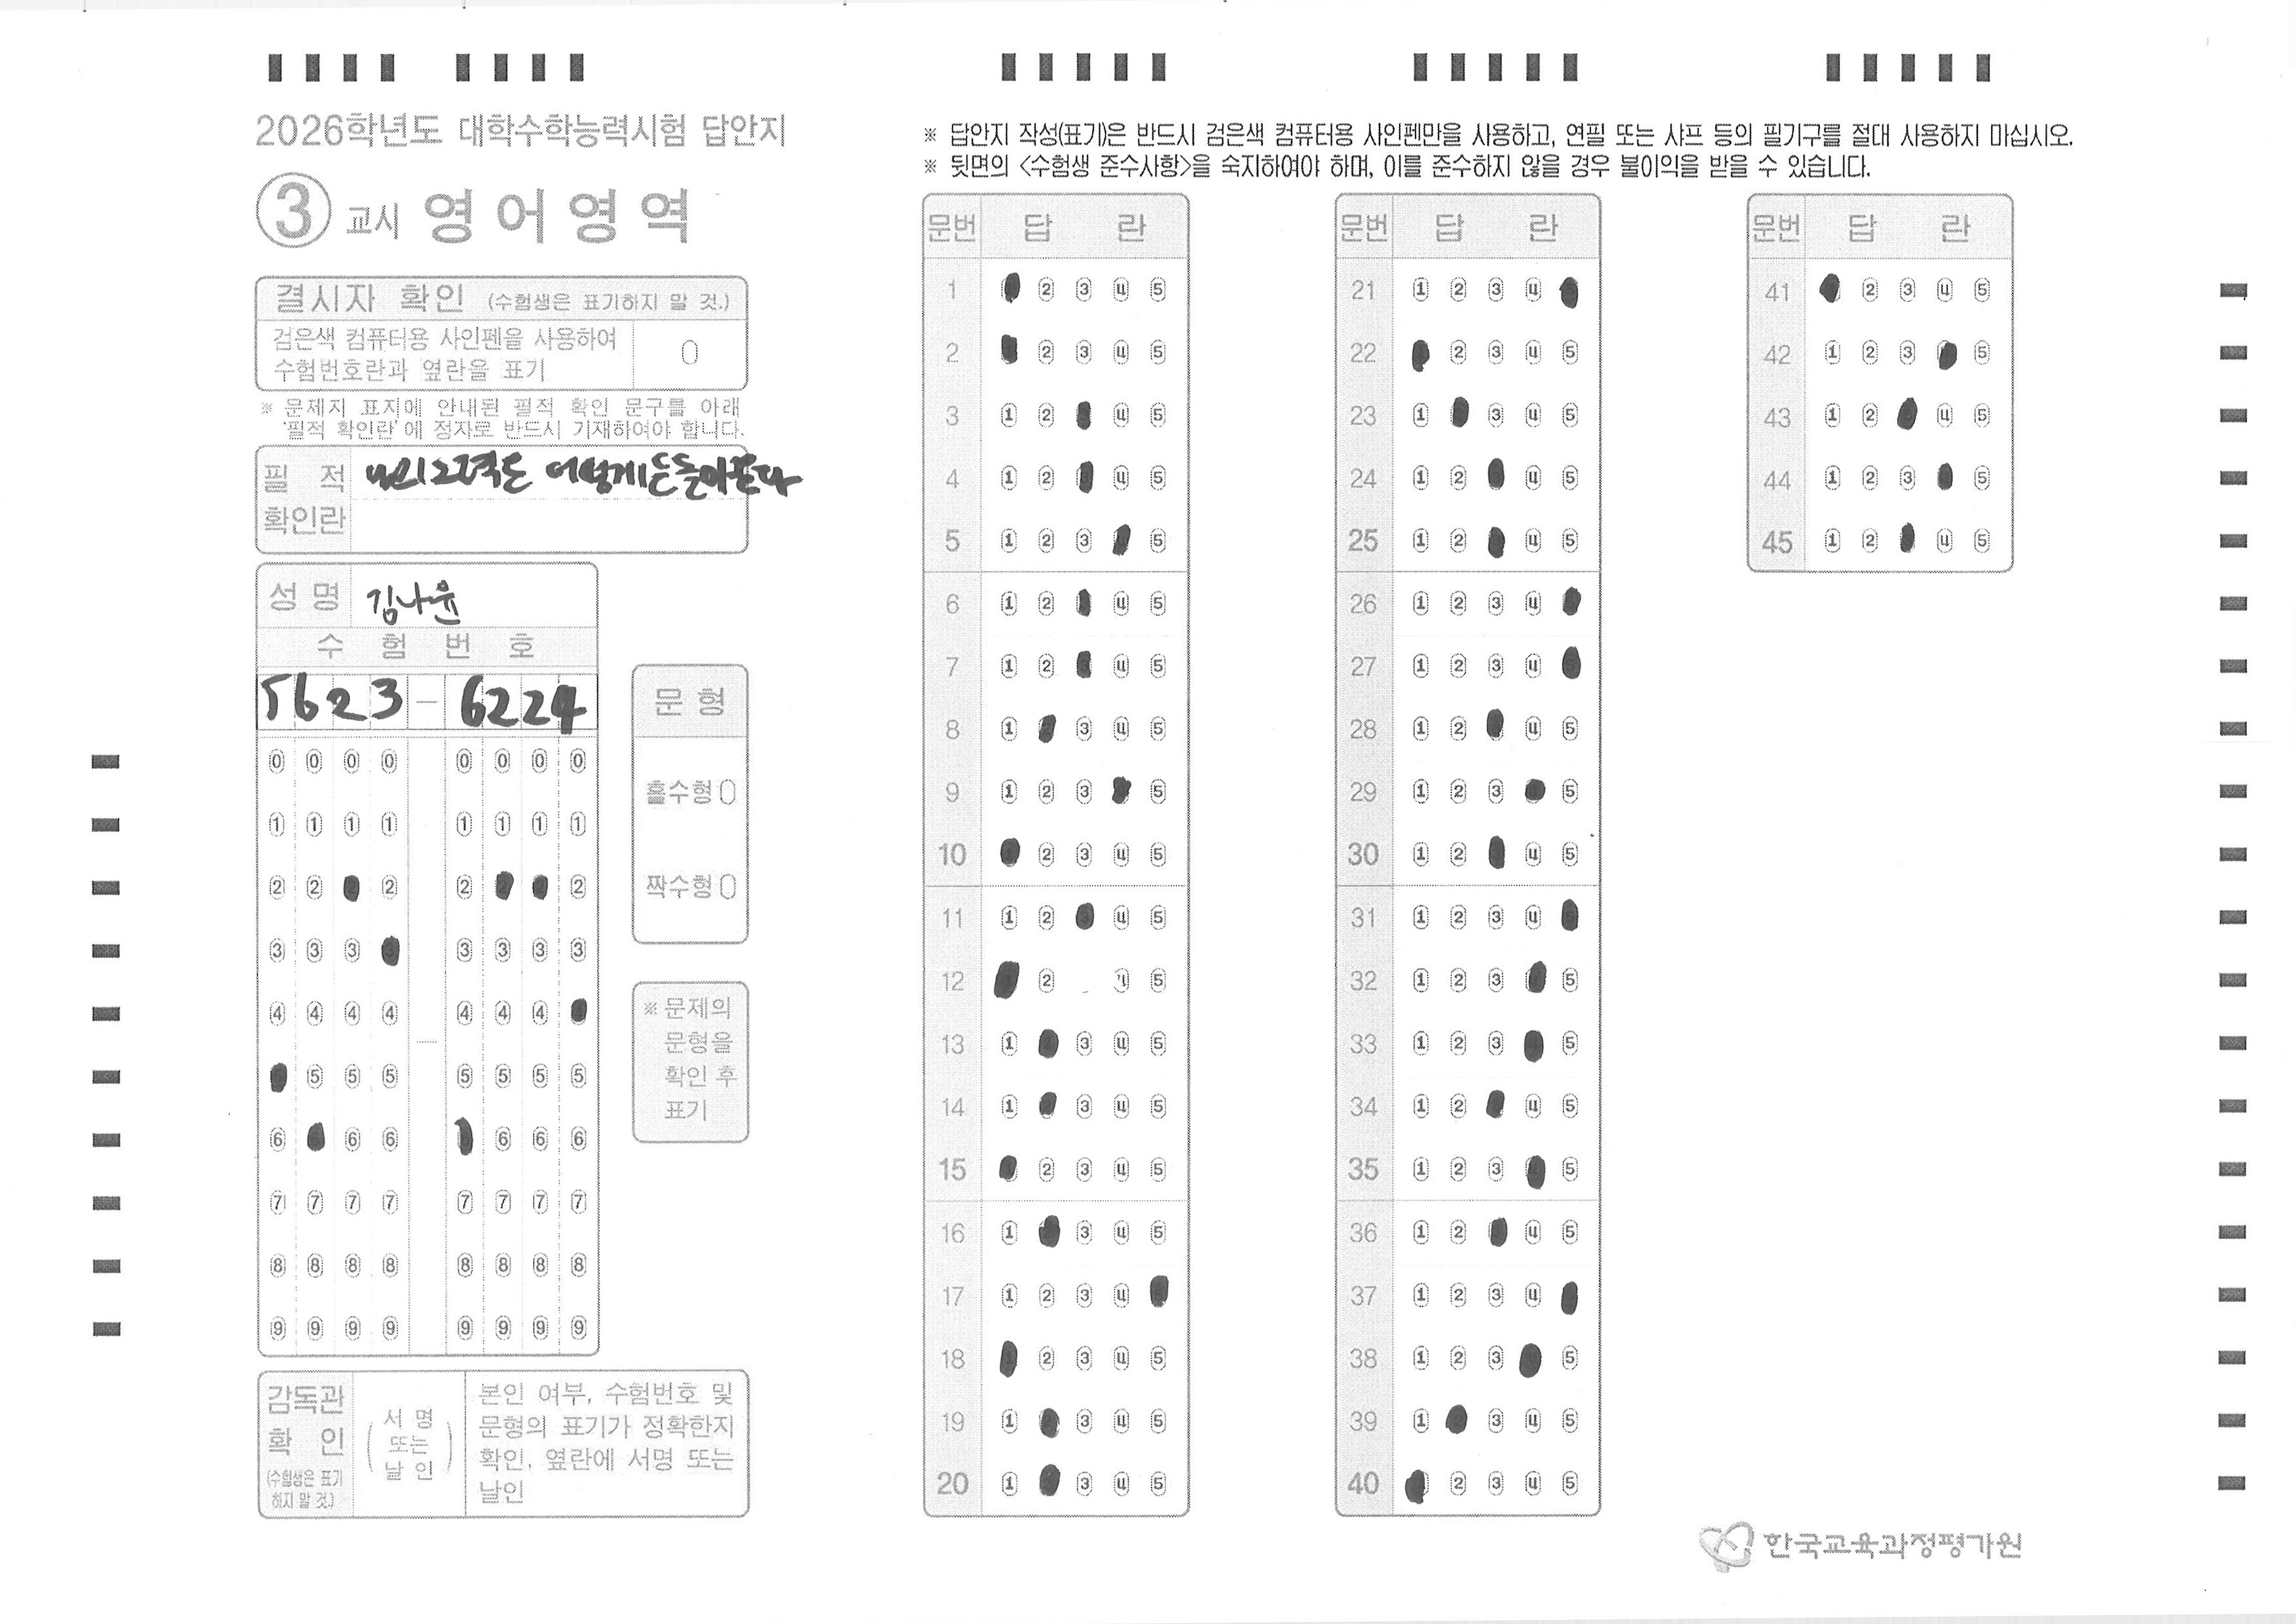 2026학년도 대학수학능력시험 답안지
③ 교시 영어영역
결시자 확인 (수험생은 표기하지 말 것.)
검은색 컴퓨터용 사인펜을 사용하여
수험번호란과 옆란을 표기
※ 문제지 표지에 안내된 필적 확인 문구를 아래
'필적 확인란'에 정자로 반드시 기재하여야 합니다.
필 적
확인란
성 명 김나윤
수 험 번 호
5623 - 6224
0 0 0 0 0 0 0 0
1 1 1 1 1 1 1 1
2 2 2 2
3 3 3 3 3 3 3
4 4 4 4 4 4 4
5 5 5 5 5 5 5
6 6 6 6 6 6
7 7 7 7 7 7 7 7
8 8 8 8 8 8 8 8
9 9 9 9 9 9 9 9
문 형
홀수형
짝수형
※ 문제의
문형을
확인 후
표기
감독관
확 인
(수험생은 표기
하지 말 것.)
서 명
또는
날 인
본인 여부, 수험번호 및
문형의 표기가 정확한지
확인, 옆란에 서명 또는
날인
※ 답안지 작성(표기)은 반드시 검은색 컴퓨터용 사인펜만을 사용하고, 연필 또는 샤프 등의 필기구를 절대 사용하지 마십시오.
※ 뒷면의 <수험생 준수사항>을 숙지하여야 하며, 이를 준수하지 않을 경우 불이익을 받을 수 있습니다.
문번 답 란
1 2 3 4 5
2 2 3 4 5
3 1 2 4 5
4 1 2 4 5
5 1 2 3 5
6 1 2 4 5
7 1 2 4 5
8 1 3 4 5
9 1 2 3 5
10 2 3 4 5
11 1 2 4 5
12 2 5
13 1 3 4 5
14 1 3 4 5
15 2 3 4 5
16 1 3 4 5
17 1 2 3 4
18 2 3 4 5
19 1 3 4 5
20 1 3 4 5
문번 답 란
21 1 2 3 4
22 2 3 4 5
23 1 3 4 5
24 1 2 4 5
25 1 2 4 5
26 1 2 3 4
27 1 2 3 4
28 1 2 4 5
29 1 2 3 5
30 1 2 4 5
31 1 2 3 4
32 1 2 3 5
33 1 2 3 5
34 1 2 4 5
35 1 2 3 5
36 1 2 4 5
37 1 2 3 4
38 1 2 3 5
39 1 3 4 5
40 2 3 4 5
문번 답 란
41 2 3 4 5
42 1 2 3 5
43 1 2 4 5
44 1 2 3 5
45 1 2 4 5
한국교육과정평가원